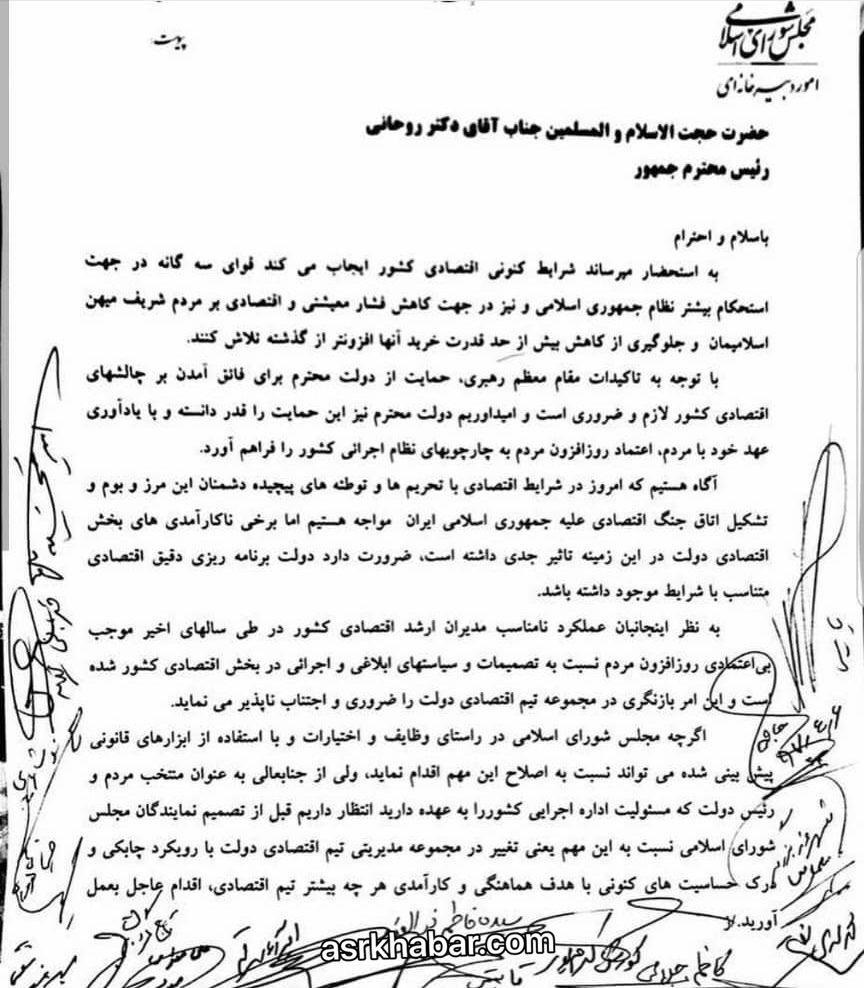 مجلس شورای اسلامی
امور دبیرخانه‌ای
پیوست:
حضرت حجت الاسلام و المسلمین جناب آقای دکتر روحانی
رئیس محترم جمهور
باسلام و احترام
به استحضار میرساند شرایط کنونی اقتصادی کشور ایجاب می کند قوای سه گانه در جهت
استحکام بیشتر نظام جمهوری اسلامی و نیز در جهت کاهش فشار معیشتی و اقتصادی بر مردم شریف میهن
اسلامیمان و جلوگیری از کاهش بیش از حد قدرت خرید آنها افزونتر از گذشته تلاش کنند.
با توجه به تاکیدات مقام معظم رهبری، حمایت از دولت محترم برای فائق آمدن بر چالشهای
اقتصادی کشور لازم و ضروری است و امیداوریم دولت محترم نیز این حمایت را قدر دانسته و با یادآوری
عهد خود با مردم، اعتماد روزافزون مردم به چارچوبهای نظام اجرائی کشور را فراهم آورد.
آگاه هستیم که امروز در شرایط اقتصادی با تحریم ها و توطئه های پیچیده دشمنان این مرز و بوم و
تشکیل اتاق جنگ اقتصادی علیه جمهوری اسلامی ایران مواجه هستیم اما برخی ناکارآمدی های بخش
اقتصادی دولت در این زمینه تاثیر جدی داشته است، ضرورت دارد دولت برنامه ریزی دقیق اقتصادی
متناسب با شرایط موجود داشته باشد.
به نظر اینجانبان عملکرد نامناسب مدیران ارشد اقتصادی کشور در طی سالهای اخیر موجب
بی‌اعتمادی روزافزون مردم نسبت به تصمیمات و سیاستهای ابلاغی و اجرائی در بخش اقتصادی کشور شده
است و این امر بازنگری در مجموعه تیم اقتصادی دولت را ضروری و اجتناب ناپذیر می نماید.
اگرچه مجلس شورای اسلامی در راستای وظایف و اختیارات و با استفاده از ابزارهای قانونی
پیش بینی شده می تواند نسبت به اصلاح این مهم اقدام نماید، ولی از جنابعالی به عنوان منتخب مردم و
رئیس دولت که مسئولیت اداره اجرایی کشوررا به عهده دارید انتظار داریم قبل از تصمیم نمایندگان مجلس
شورای اسلامی نسبت به این مهم یعنی تغییر در مجموعه مدیریتی تیم اقتصادی دولت با رویکرد چابکی و
درک حساسیت های کنونی با هدف هماهنگی و کارآمدی هر چه بیشتر تیم اقتصادی، اقدام عاجل بعمل
آورید.
سیده فاطمه ذوالقدر
کاظم جلالی
asrkhabar.com